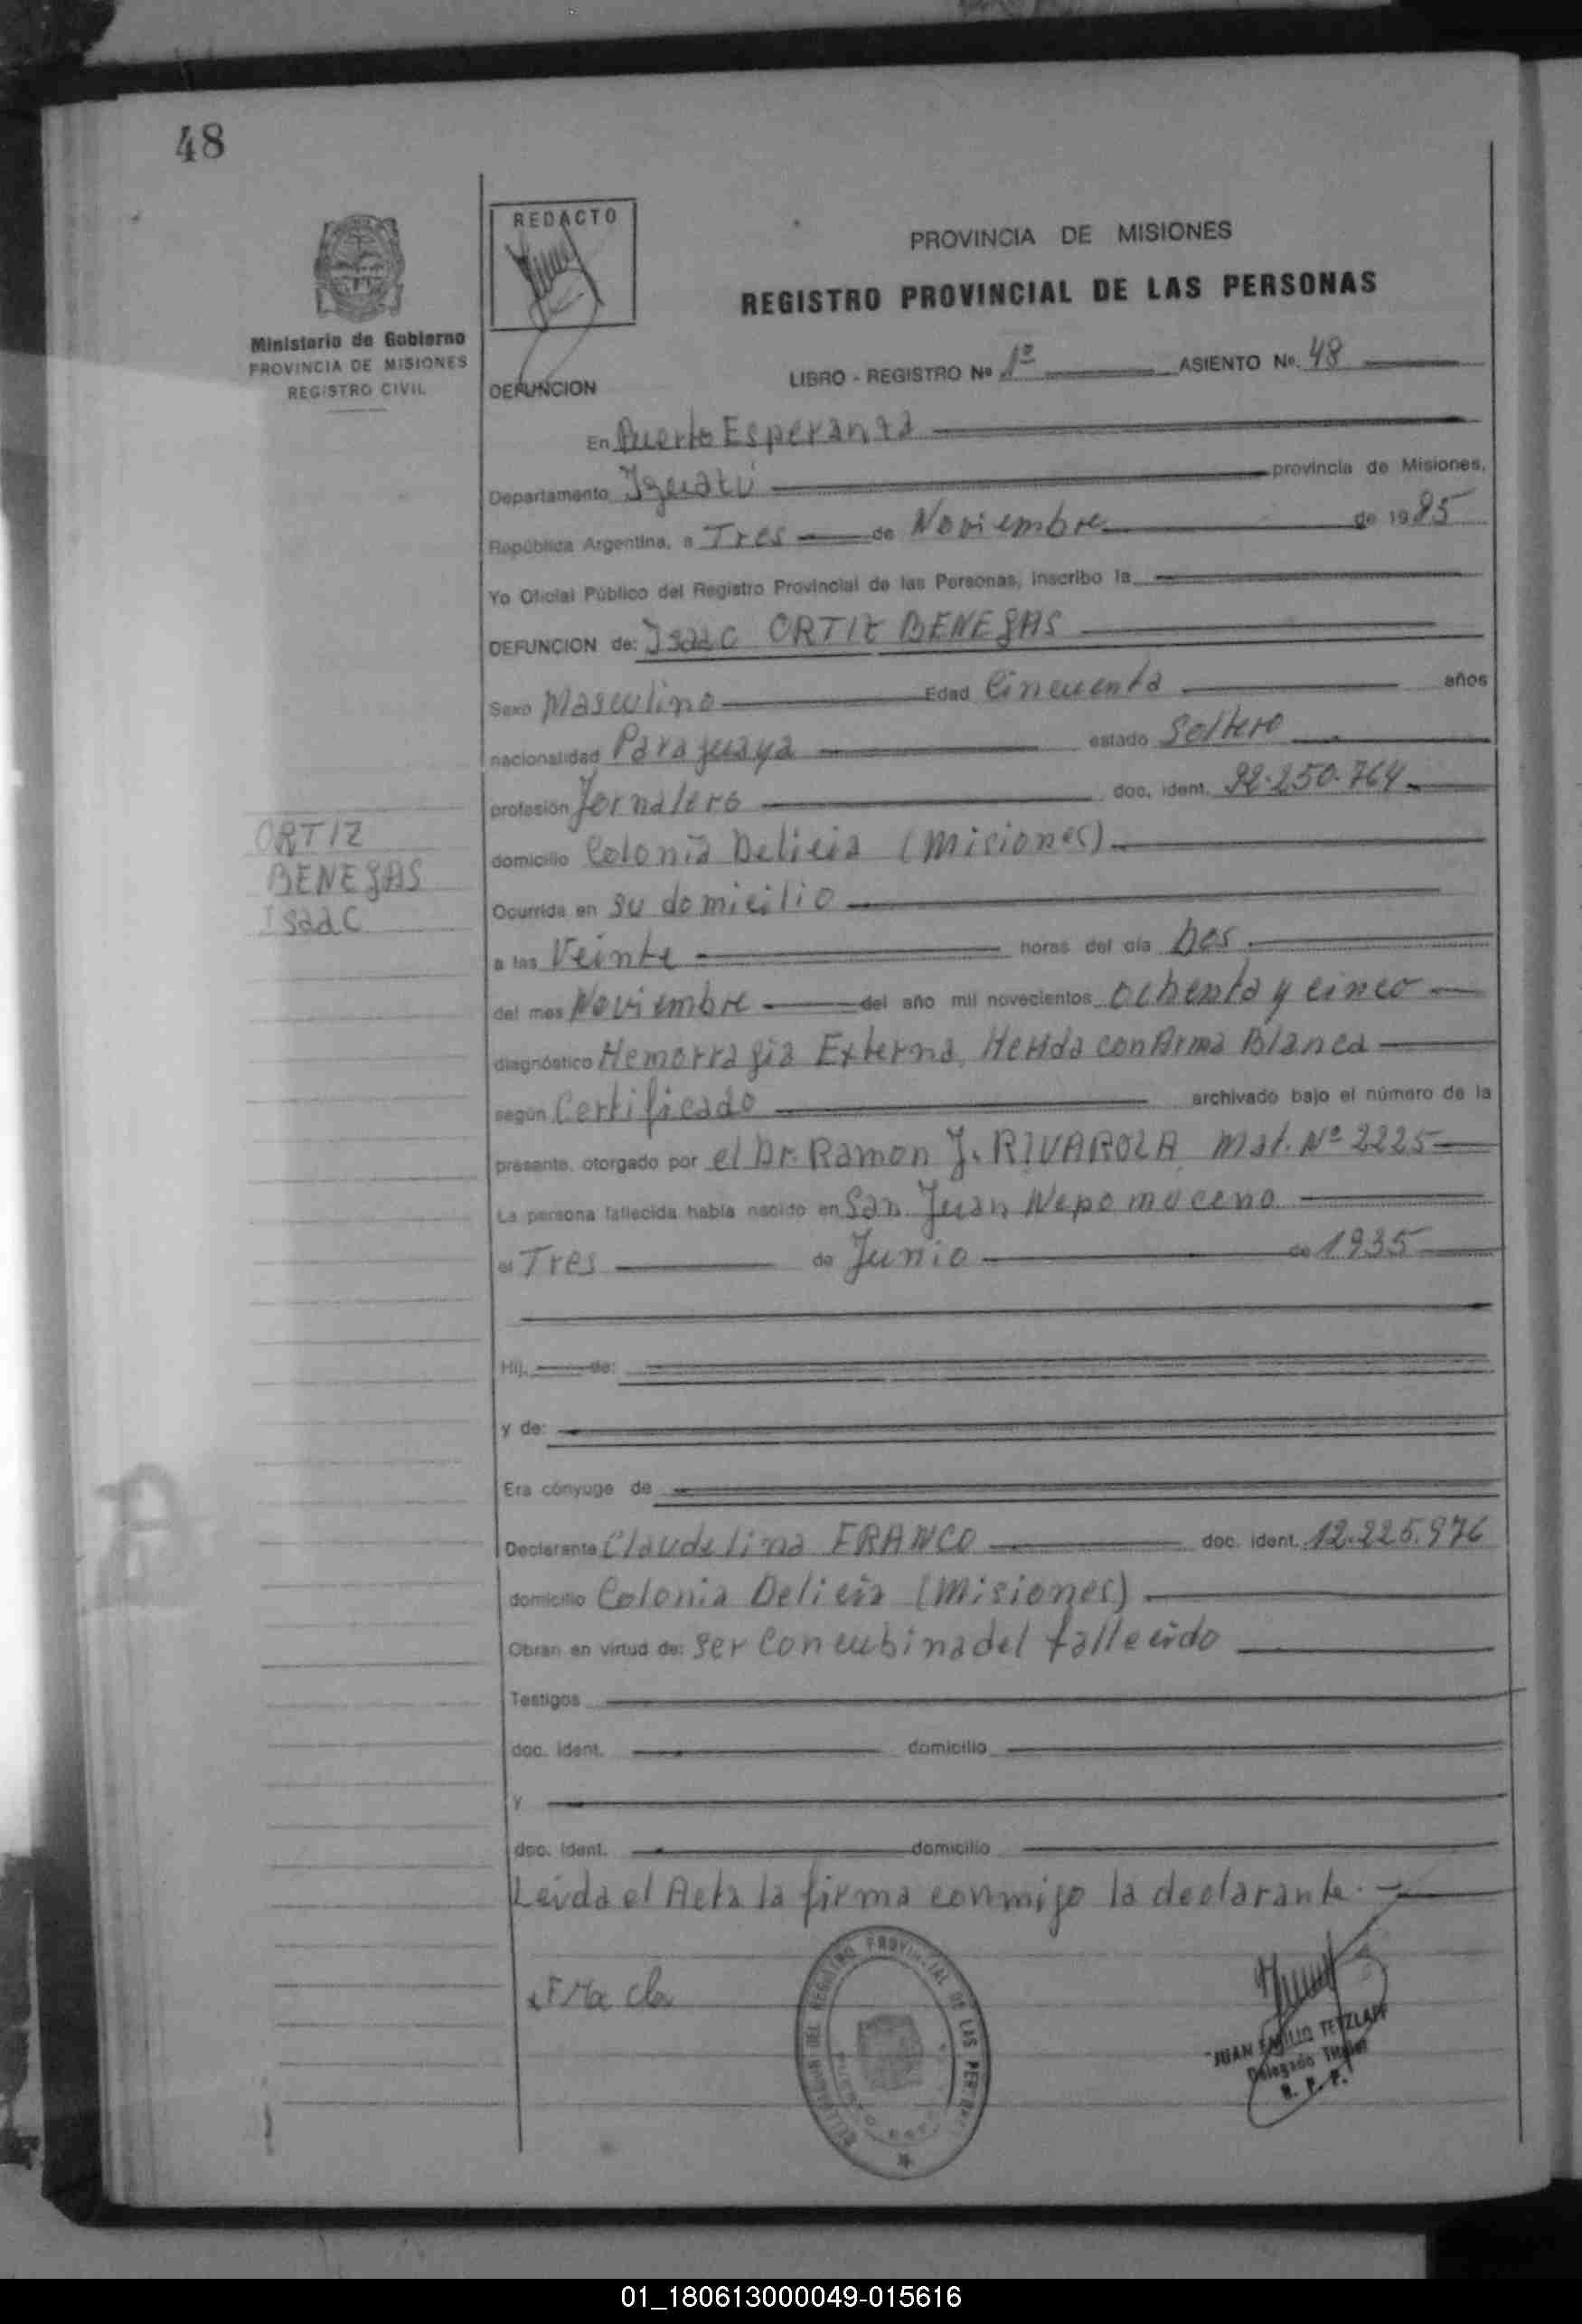 48
Ministerio de Gobierno
PROVINCIA DE MISIONES
REGISTRO CIVIL
REDACTO
PROVINCIA DE MISIONES
REGISTRO PROVINCIAL DE LAS PERSONAS
DEFUNCION
LIBRO - REGISTRO Nº 1º ASIENTO Nº. 48
En Puerto Esperanza
Departamento Iguazú provincia de Misiones,
República Argentina, a Tres de Noviembre de 1985
Yo Oficial Público del Registro Provincial de las Personas, inscribo la
DEFUNCION de: Isaac ORTIZ BENEGAS
Sexo Masculino Edad Cincuenta años
nacionalidad Paraguaya estado Soltero
profesión Jornalero doc. ident. 92.250.764
ORTIZ
BENEGAS
Isaac
domicilio Colonia Delicia (Misiones)
Ocurrida en su domicilio
a las Veinte horas del día Dos
del mes Noviembre del año mil novecientos ochenta y cinco
diagnóstico Hemorragia Externa, Herida con Arma Blanca
según Certificado archivado bajo el número de la
presente, otorgado por el Dr. Ramon J. RIVAROLA Mat. Nº 2225
La persona fallecida había nacido en San Juan Nepomuceno
el Tres de Junio de 1935
Hij. de:
y de:
Era cónyuge de
Declarante Claudelina FRANCO doc. ident. 12.225.976
domicilio Colonia Delicia (Misiones)
Obran en virtud de: ser concubina del fallecido
Testigos
doc. ident. domicilio
y
doc. ident. domicilio
Leida el Acta la firma conmigo la declarante.
DELEGACION DEL REGISTRO PROVINCIAL DE LAS PERSONAS
JUAN EMILIO TETZLAFF
Delegado Titular
R. P. P.
01_180613000049-015616